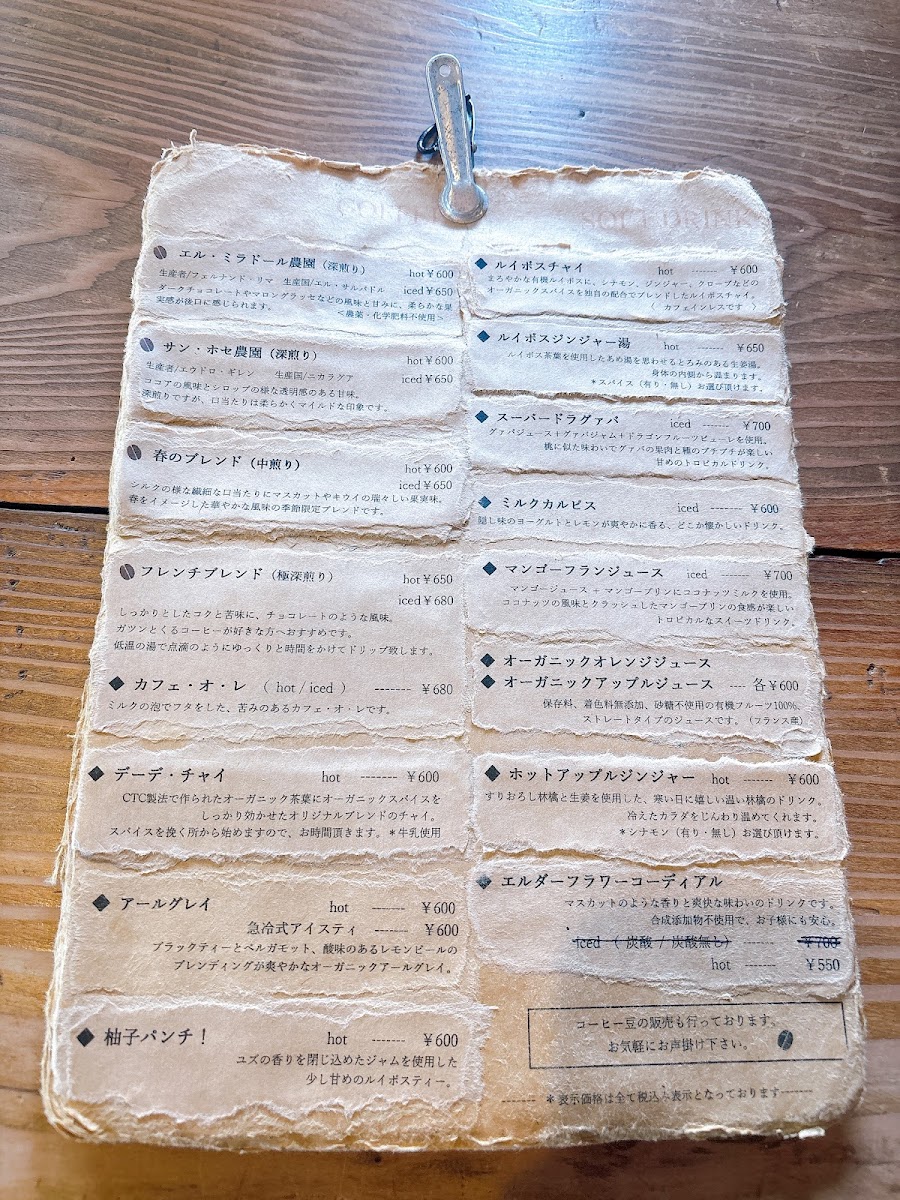 エル・ミラドール農園（深煎り） hot￥600
生産者/フェルナンド・リマ 生産国/エル・サルバドル iced￥650
ダークチョコレートやマロングラッセなどの風味と甘みに、柔らかな果
実感が後口に感じられます。 ＜農薬・化学肥料不使用＞
サン・ホセ農園（深煎り） hot￥600
生産者/エウドロ・ギレン 生産国/ニカラグア iced￥650
ココアの風味とシロップの様な透明感のある甘味。
深煎りですが、口当たりは柔らかくマイルドな印象です。
春のブレンド（中煎り） hot￥600
iced￥650
シルクの様な繊細な口当たりにマスカットやキウイの瑞々しい果実味。
春をイメージした華やかな風味の季節限定ブレンドです。
フレンチブレンド（極深煎り） hot￥650
iced￥680
しっかりとしたコクと苦味に、チョコレートのような風味。
ガツンとくるコーヒーが好きな方へおすすめです。
低温の湯で点滴のようにゆっくりと時間をかけてドリップ致します。
◆ カフェ・オ・レ （ hot / iced ） ------- ￥680
ミルクの泡でフタをした、苦みのあるカフェ・オ・レです。
◆ デーデ・チャイ hot ------- ￥600
CTC製法で作られたオーガニック茶葉にオーガニックスパイスを
しっかり効かせたオリジナルブレンドのチャイ。
スパイスを挽く所から始めますので、お時間頂きます。＊牛乳使用
◆ アールグレイ hot ------- ￥600
急冷式アイスティ ------- ￥600
ブラックティーとベルガモット、酸味のあるレモンピールの
ブレンディングが爽やかなオーガニックアールグレイ。
◆ 柚子パンチ！ hot ------- ￥600
ユズの香りを閉じ込めたジャムを使用した
少し甘めのルイボスティー。
◆ ルイボスチャイ hot ------- ￥600
まろやかな有機ルイボスに、シナモン、ジンジャー、クローブなどの
オーガニックスパイスを独自の配合でブレンドしたルイボスチャイ。
（ カフェインレスです ）
◆ ルイボスジンジャー湯 hot ------- ￥650
ルイボス茶葉を使用したあめ湯を思わせるとろみのある生姜湯。
身体の内側から温まります。
＊スパイス（有り・無し）お選び頂けます。
◆ スーパードラグァバ iced ------- ￥700
グァバジュース＋グァバジャム＋ドラゴンフルーツピューレを使用。
桃に似た味わいでグァバの果肉と種のプチプチが楽しい
甘めのトロピカルドリンク。
◆ ミルクカルピス iced ------- ￥600
隠し味のヨーグルトとレモンが爽やかに香る、どこか懐かしいドリンク。
◆ マンゴーフランジュース iced ------- ￥700
マンゴージュース + マンゴープリンにココナッツミルクを使用。
ココナッツの風味とクラッシュしたマンゴープリンの食感が楽しい
トロピカルなスイーツドリンク。
◆ オーガニックオレンジジュース
◆ オーガニックアップルジュース ---- 各￥600
保存料、着色料無添加、砂糖不使用の有機フルーツ100%、
ストレートタイプのジュースです。（フランス産）
◆ ホットアップルジンジャー hot ------- ￥600
すりおろし林檎と生姜を使用した、寒い日に嬉しい温い林檎のドリンク。
冷えたカラダをじんわり温めてくれます。
＊シナモン（有り・無し）お選び頂けます。
◆ エルダーフラワーコーディアル
マスカットのような香りと爽快な味わいのドリンクです。
合成添加物不使用で、お子様にも安心。
iced （ 炭酸 / 炭酸無し） ------- ￥700
hot ------- ￥550
コーヒー豆の販売も行っております。
お気軽にお声掛け下さい。
------- ＊表示価格は全て税込み表示となっております-------